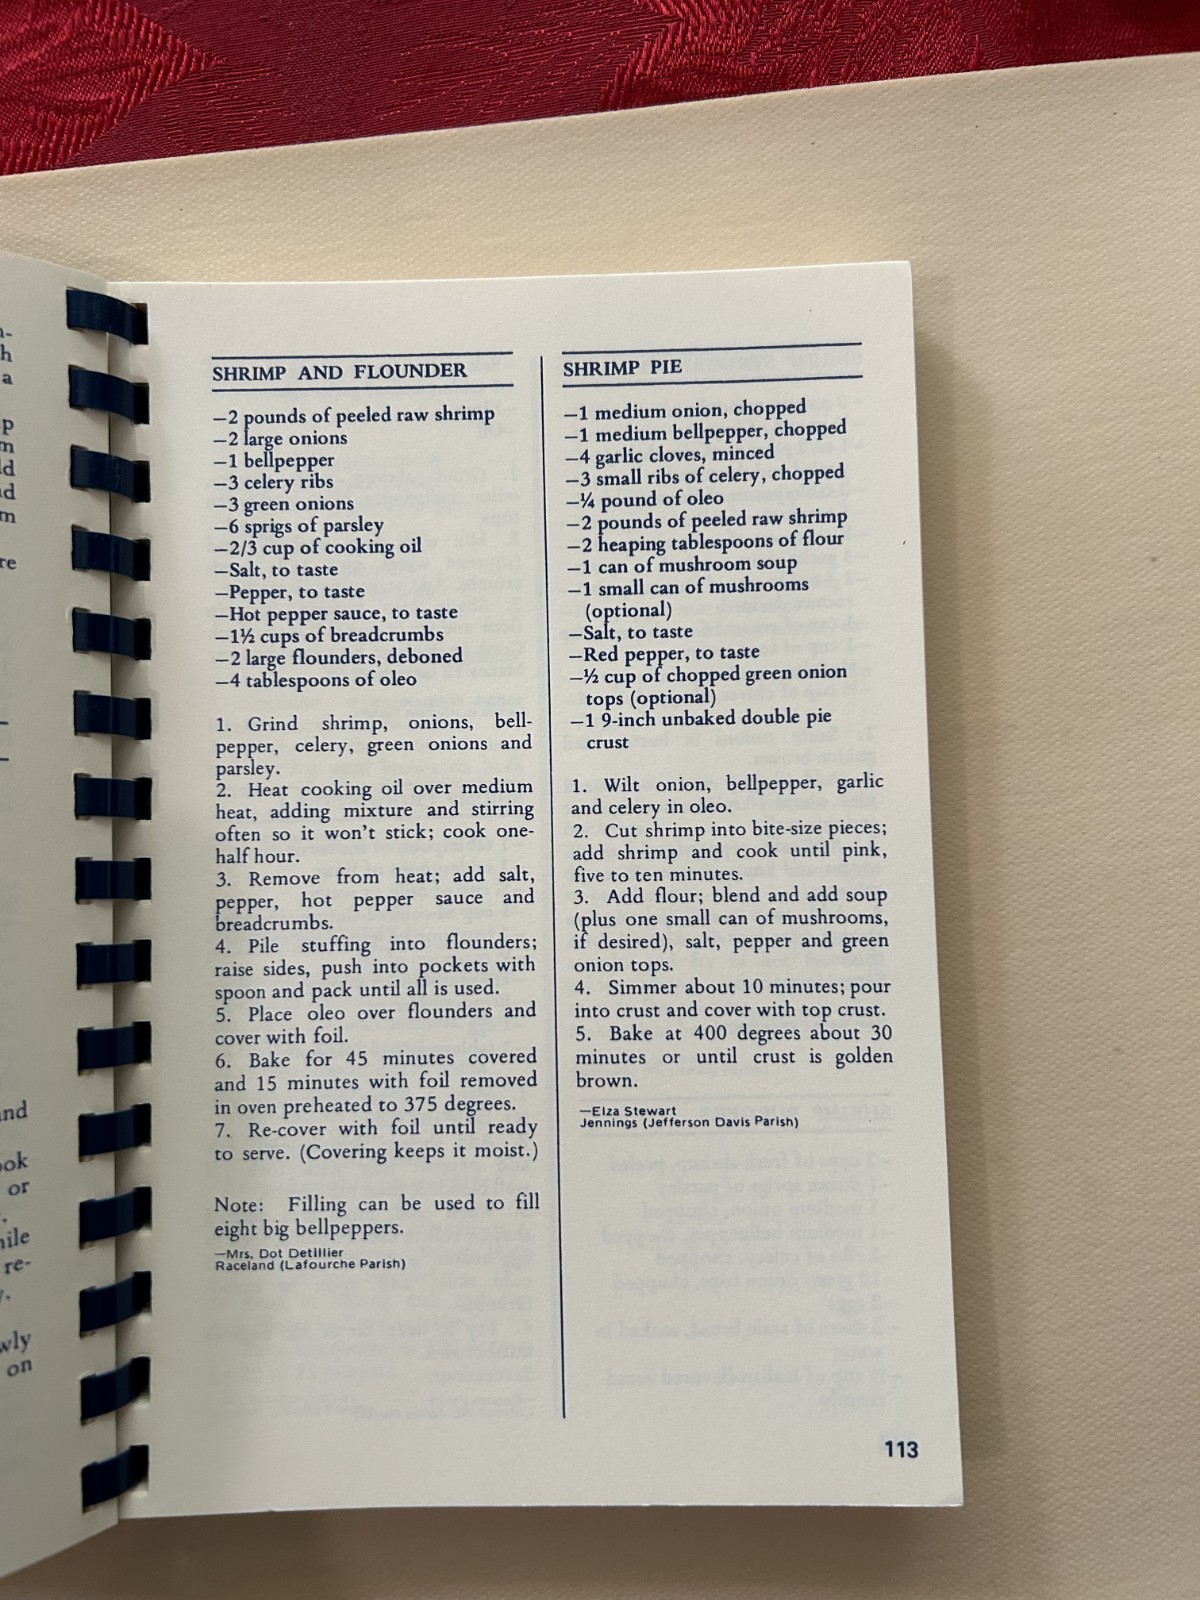 SHRIMP AND FLOUNDER
—2 pounds of peeled raw shrimp
—2 large onions
—1 bellpepper
—3 celery ribs
—3 green onions
—6 sprigs of parsley
—2/3 cup of cooking oil
—Salt, to taste
—Pepper, to taste
—Hot pepper sauce, to taste
—1½ cups of breadcrumbs
—2 large flounders, deboned
—4 tablespoons of oleo
1. Grind shrimp, onions, bell-
pepper, celery, green onions and
parsley.
2. Heat cooking oil over medium
heat, adding mixture and stirring
often so it won't stick; cook one-
half hour.
3. Remove from heat; add salt,
pepper, hot pepper sauce and
breadcrumbs.
4. Pile stuffing into flounders;
raise sides, push into pockets with
spoon and pack until all is used.
5. Place oleo over flounders and
cover with foil.
6. Bake for 45 minutes covered
and 15 minutes with foil removed
in oven preheated to 375 degrees.
7. Re-cover with foil until ready
to serve. (Covering keeps it moist.)
Note: Filling can be used to fill
eight big bellpeppers.
—Mrs. Dot Detillier
Raceland (Lafourche Parish)
SHRIMP PIE
—1 medium onion, chopped
—1 medium bellpepper, chopped
—4 garlic cloves, minced
—3 small ribs of celery, chopped
—¼ pound of oleo
—2 pounds of peeled raw shrimp
—2 heaping tablespoons of flour
—1 can of mushroom soup
—1 small can of mushrooms
(optional)
—Salt, to taste
—Red pepper, to taste
—½ cup of chopped green onion
tops (optional)
—1 9-inch unbaked double pie
crust
1. Wilt onion, bellpepper, garlic
and celery in oleo.
2. Cut shrimp into bite-size pieces;
add shrimp and cook until pink,
five to ten minutes.
3. Add flour; blend and add soup
(plus one small can of mushrooms,
if desired), salt, pepper and green
onion tops.
4. Simmer about 10 minutes; pour
into crust and cover with top crust.
5. Bake at 400 degrees about 30
minutes or until crust is golden
brown.
—Elza Stewart
Jennings (Jefferson Davis Parish)
113